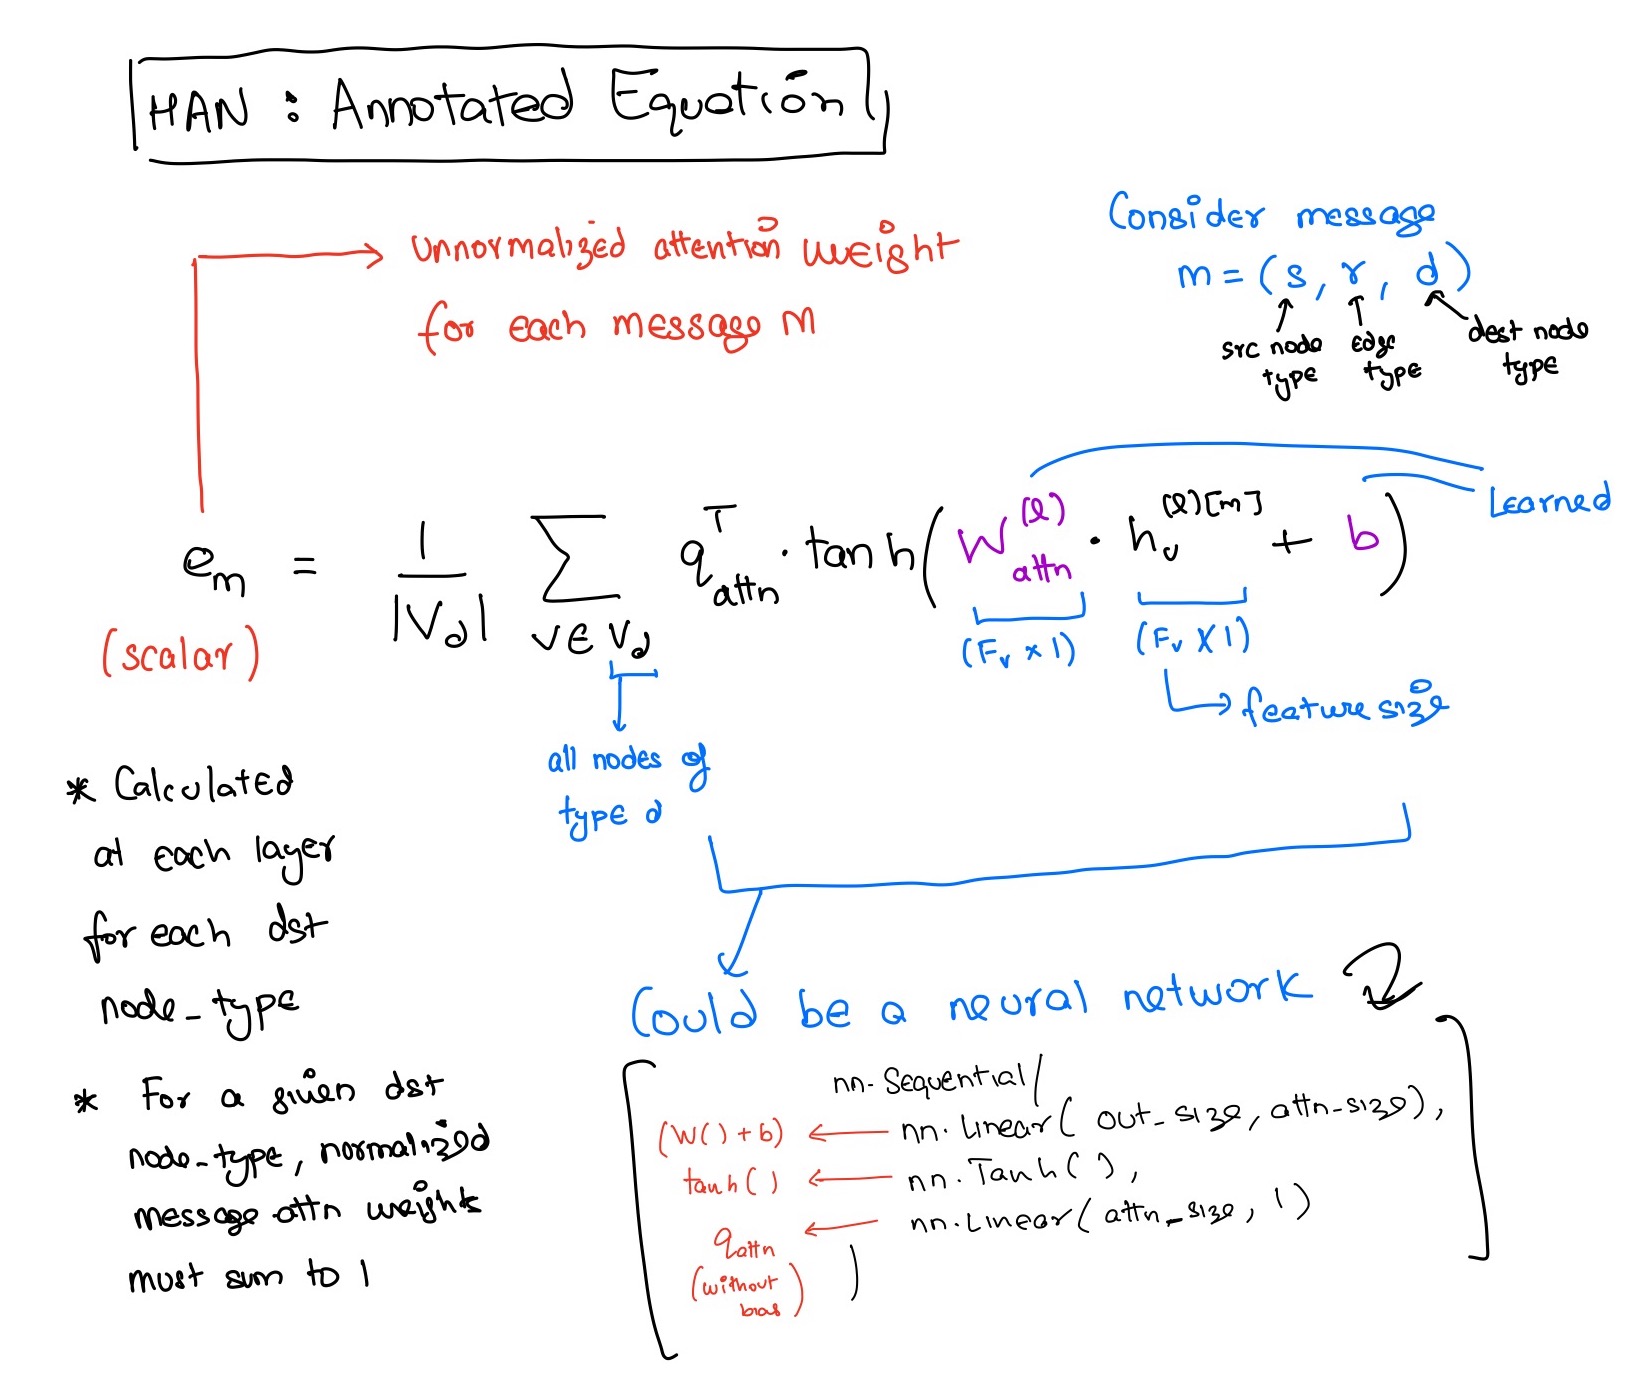 HAN : Annotated Equation
Unnormalized attention weight
for each message m
Consider message
m = (s, r, d)
src node type
edge type
dest node type
Learned
e_m = 1/|V_d| ∑_{v∈V_d} q_attn^T · tanh( W_attn^(l) · h_v^(l)[m] + b )
(scalar)
(F_v × 1)
(F_v × 1)
feature size
all nodes of
type d
* Calculated
at each layer
for each dst
node_type
* For a given dst
node_type, normalized
message attn weights
must sum to 1
Could be a neural network
nn.Sequential(
(W() + b) ← nn.Linear( out_size, attn_size),
tanh( ) ← nn.Tanh( ),
q_attn ← nn.Linear( attn_size, 1)
(without
bias)
)